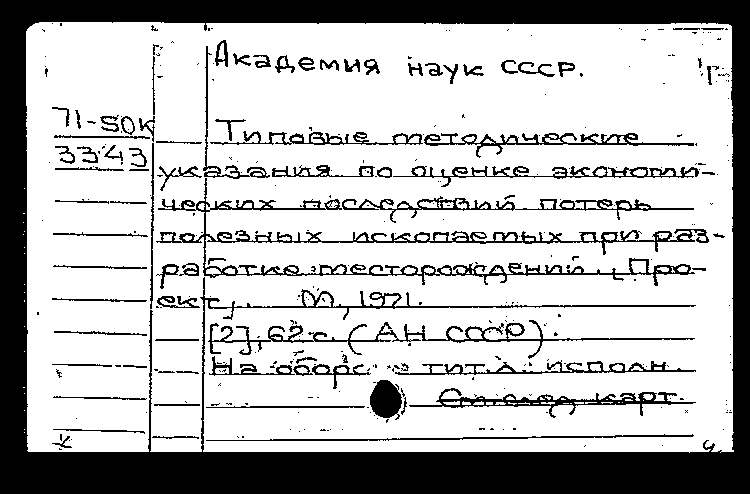 Академия наук СССР.
71-50К
3343
Типовые методические
указания по оценке экономи-
ческих последствий потерь
полезных ископаемых при раз-
работке месторождений. [Про-
ект]. М., 1971.
[2], 62 с. (АН СССР).
На обороте тит. л.: исполн.
См. след. карт.